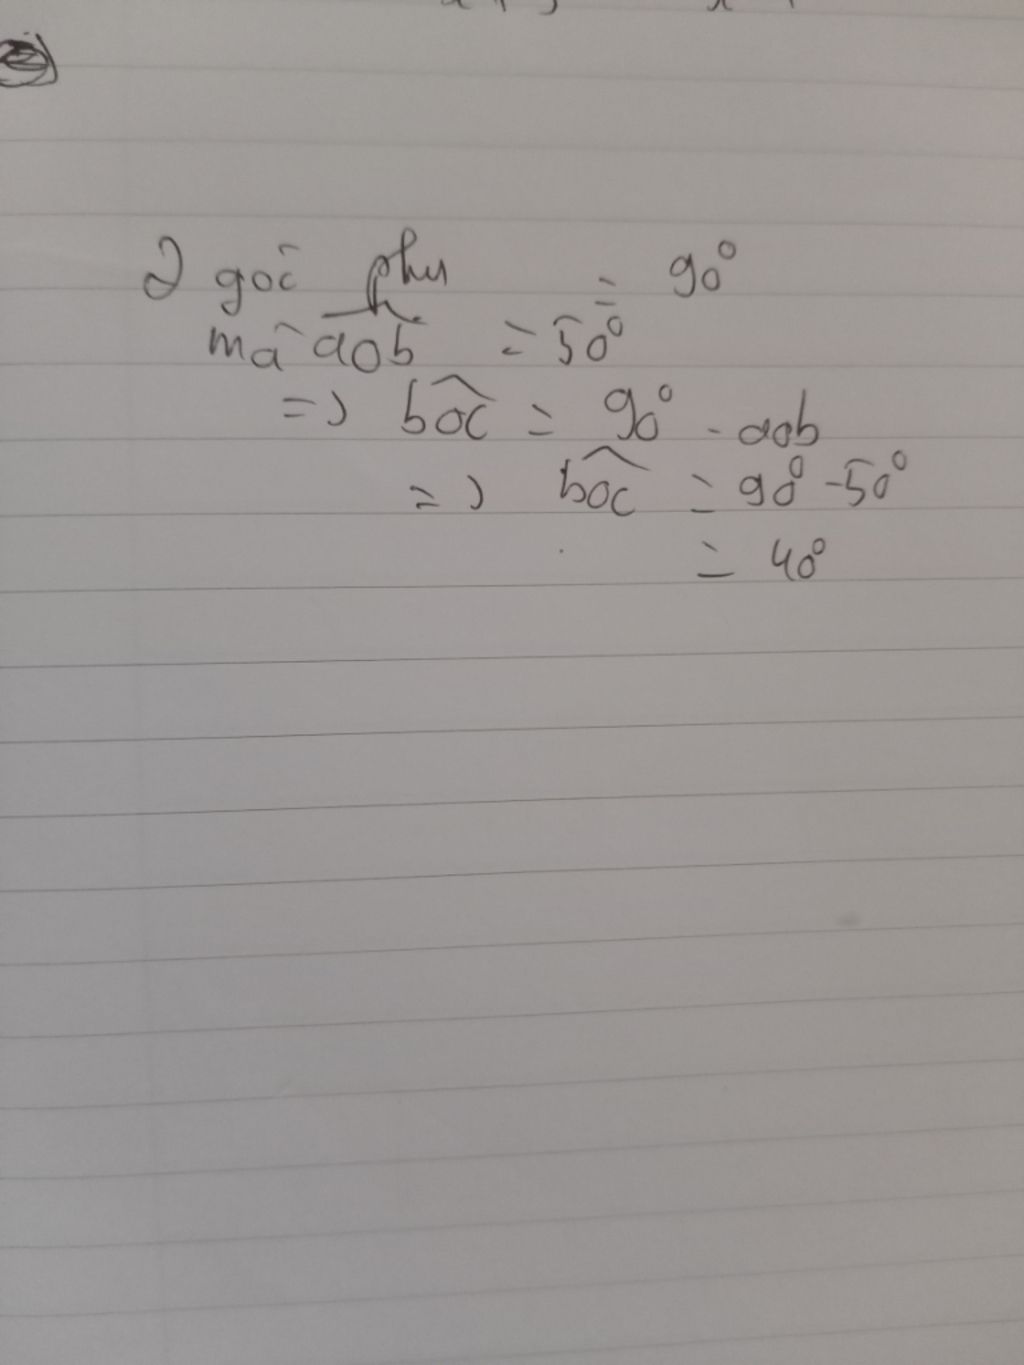 2 góc phụ = 90°
mà aob = 50°
=> boc = 90° - aob
=> boc = 90° - 50°
= 40°